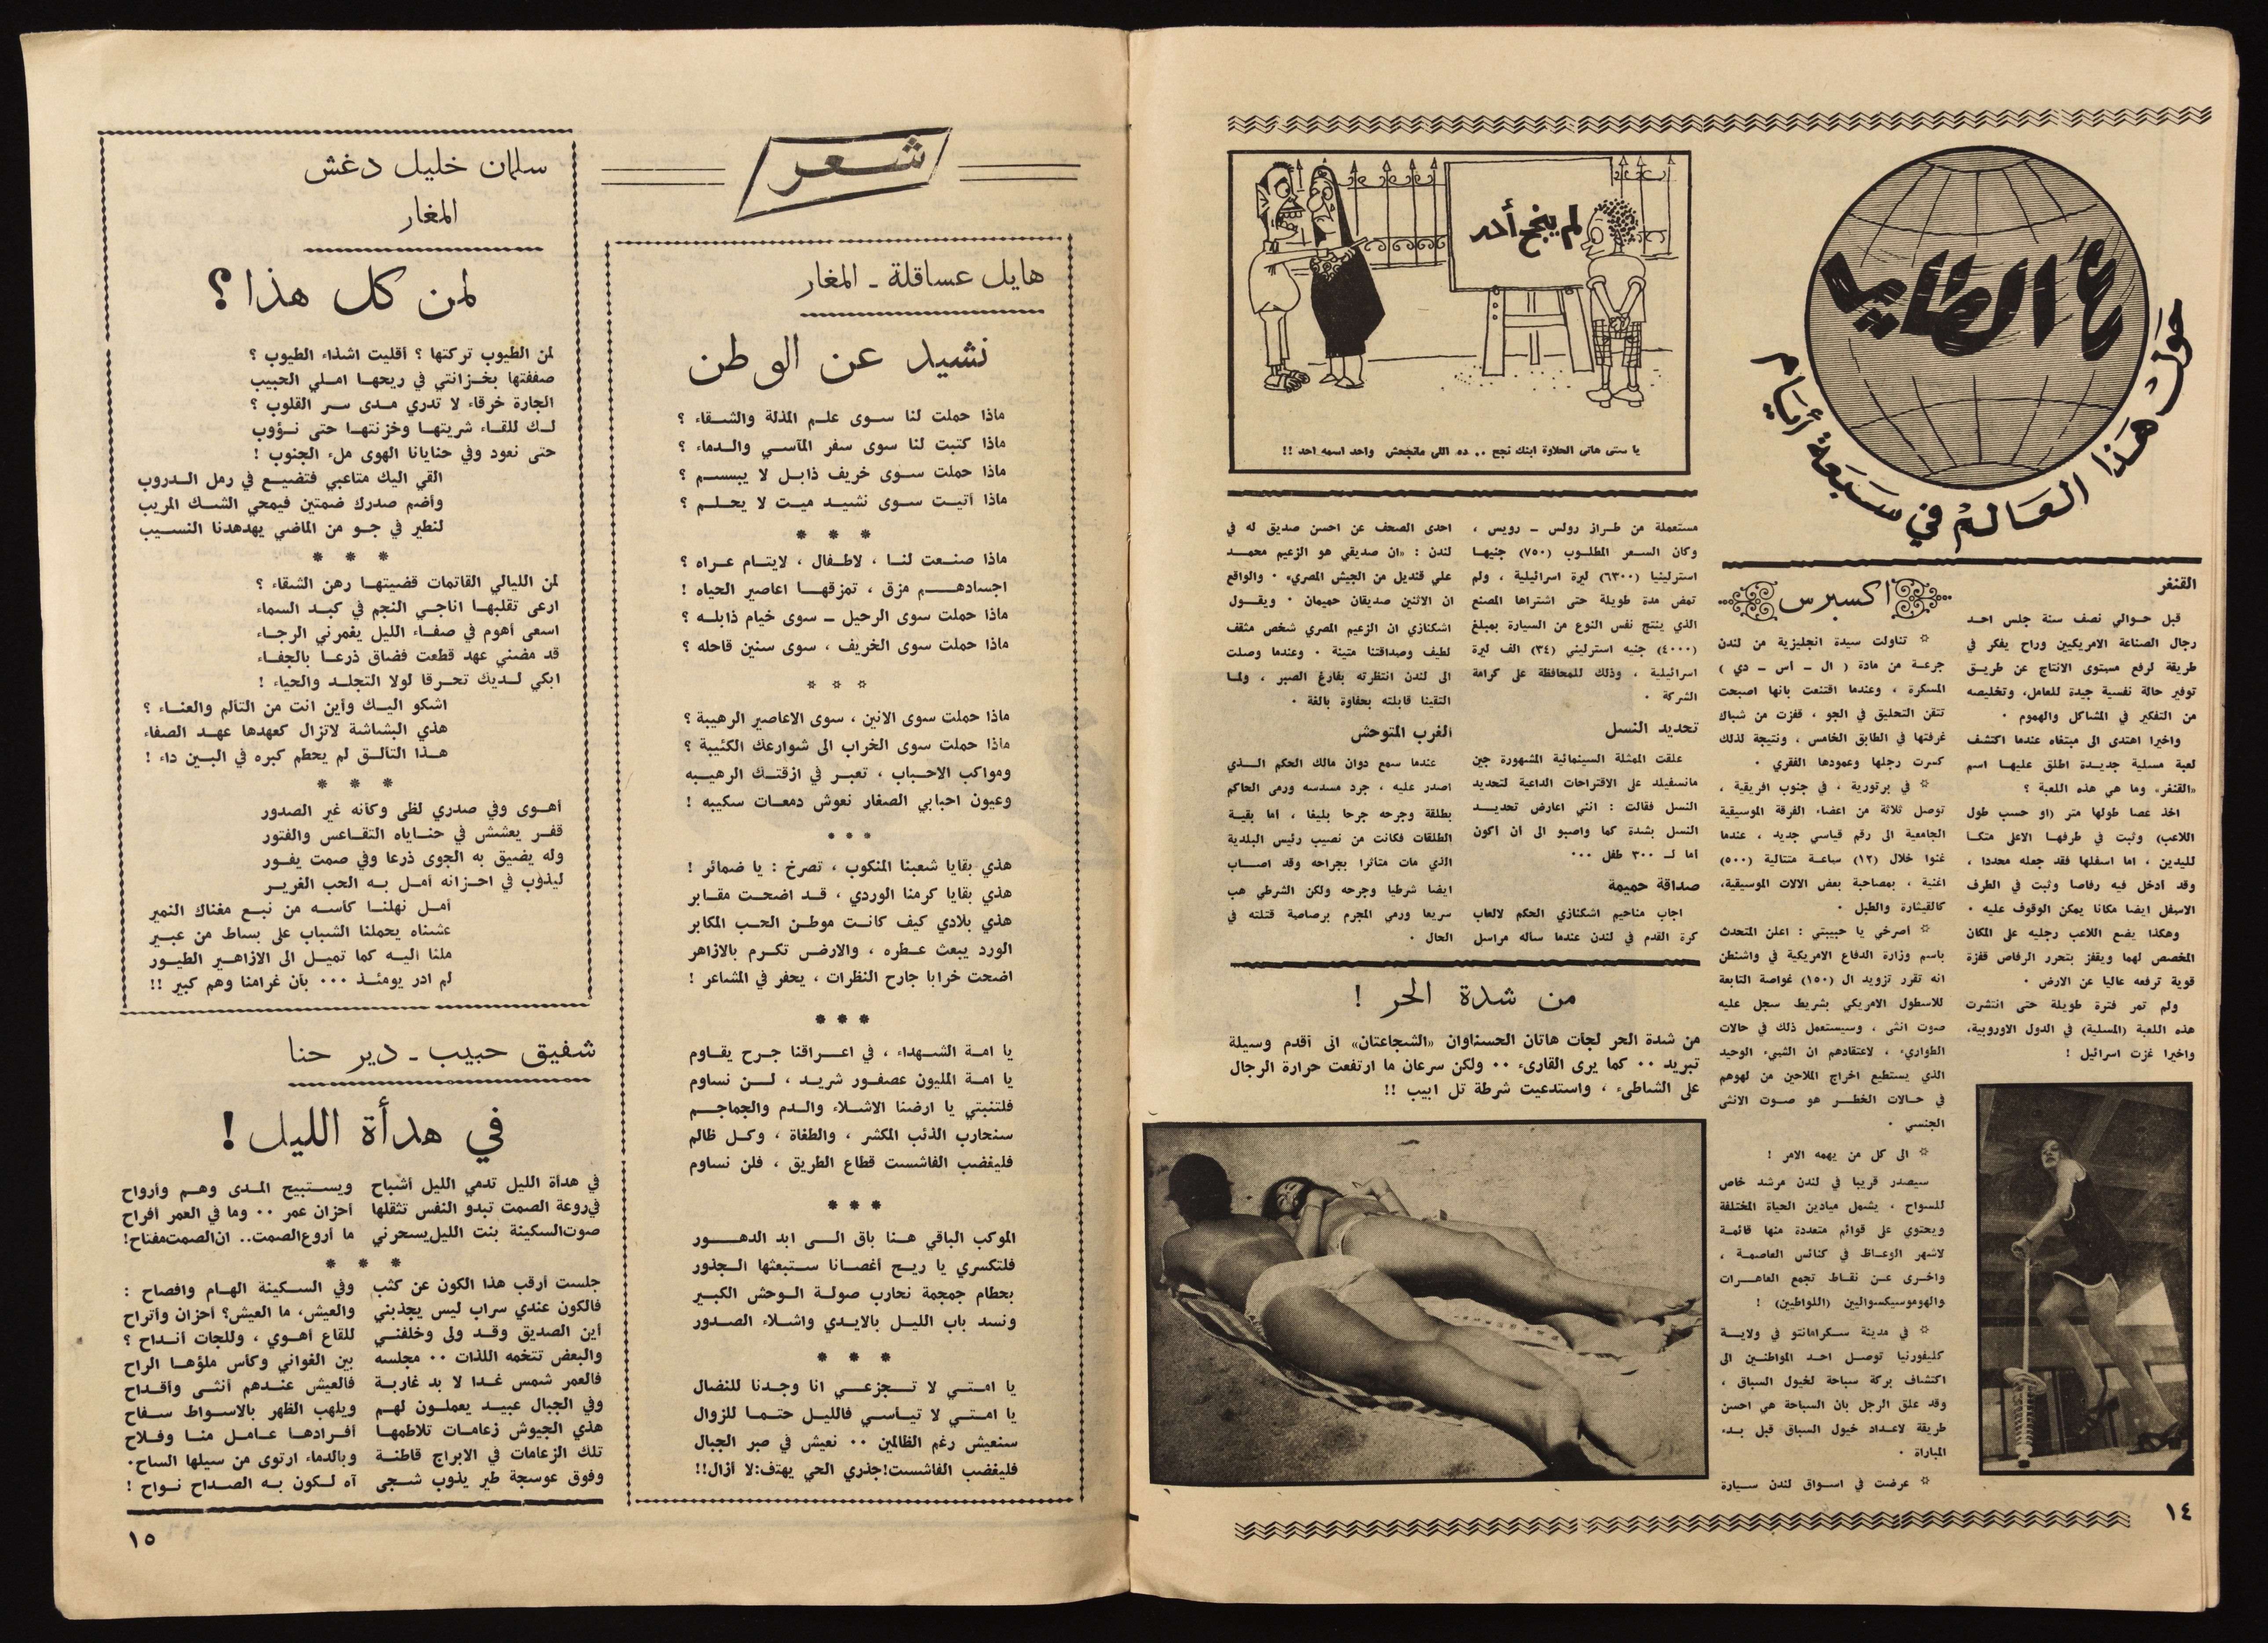 ع الطاير
حول هذا العالم في سبعة أيام
القنغر
قبل حوالي نصف سنة جلس احد
رجال الصناعة الامريكيين وراح يفكر في
طريقة لرفع مستوى الانتاج عن طريق
توفير حالة نفسية جيدة للعامل، وتخليصه
من التفكير في المشاكل والهموم .
واخيرا اهتدى الى مبتغاه عندما اكتشف
لعبة مسلية جديدة اطلق عليها اسم
«القنغر» وما هي هذه اللعبة ؟
اخذ عصا طولها متر (او حسب طول
اللاعب) وثبت في طرفها الاعلى متكا
لليدين ، اما اسفلها فقد جعله محددا ،
وقد ادخل فيه رفاصا وثبت في الطرف
الاسفل ايضا مكانا يمكن الوقوف عليه .
وهكذا يضع اللاعب رجليه على المكان
المخصص لهما ويقفز بتحرر الرفاص قفزة
قوية ترفعه عاليا عن الارض .
ولم تمر فترة طويلة حتى انتشرت
هذه اللعبة (المسلية) في الدول الاوروبية،
واخيرا غزت اسرائيل !
اكسبرس
* تناولت سيدة انجليزية من لندن
جرعة من مادة ( ال ــ أس ــ دي )
المسكرة ، وعندما اقتنعت بانها اصبحت
تتقن التحليق في الجو ، قفزت من شباك
غرفتها في الطابق الخامس ، ونتيجة لذلك
كسرت رجلها وعمودها الفقري .
* في برتورية ، في جنوب افريقية ،
توصل ثلاثة من اعضاء الفرقة الموسيقية
الجامعية الى رقم قياسي جديد ، عندما
غنوا خلال (١٢) ساعة متتالية (٥٠٠)
اغنية ، بمصاحبة بعض الالات الموسيقية،
كالقيثارة والطبل .
* اصرخي يا حبيبتي : اعلن المتحدث
باسم وزارة الدفاع الامريكية في واشنطن
انه تقرر تزويد ال (١٥٠) غواصة التابعة
للاسطول الامريكي بشريط سجل عليه
صوت انثى ، وسيستعمل ذلك في حالات
الطوارىء ، لاعتقادهم ان الشيء الوحيد
الذي يستطيع اخراج الملاحين من لهوهم
في حالات الخطر هو صوت الانثى
الجنسي .
* الى كل من يهمه الامر !
سيصدر قريبا في لندن مرشد خاص
للسواح ، يشمل ميادين الحياة المختلفة
ويحتوي على قوائم متعددة منها قائمة
لاشهر الوعاظ في كنائس العاصمة ،
واخرى عن نقاط تجمع العاهرات
والهوموسيكسواليين (اللواطيين) !
* في مدينة سكرامانتو في ولاية
كليفورنيا توصل احد المواطنين الى
اكتشاف بركة سباحة لخيول السباق ،
وقد علق الرجل بان السباحة هي احسن
طريقة لاعداد خيول السباق قبل بدء
المباراة .
* عرضت في اسواق لندن سيارة
لم ينجح أحد
يا ستى هاتى الحلاوة ابنك نجح .. ده اللى مانجحش واحد اسمه احد !!
مستعملة من طراز رولس ــ رويس ،
وكان السعر المطلوب (٧٥٠) جنيها
استرلينيا (٦٣٠٠) ليرة اسرائيلية ، ولم
تمض مدة طويلة حتى اشتراها المصنع
الذي ينتج نفس النوع من السيارة بمبلغ
(٤٠٠٠) جنيه استرليني (٣٤) الف ليرة
اسرائيلية ، وذلك للمحافظة على كرامة
الشركة .
تحديد النسل
علقت الممثلة السينمائية المشهورة جين
مانسفيلد على الاقتراحات الداعية لتحديد
النسل فقالت : انني اعارض تحديد
النسل بشدة كما واصبو الى أن أكون
أما لـ ٣٠٠ طفل ...
صداقة حميمة
اجاب مناحيم اشكنازي الحكم لالعاب
كرة القدم في لندن عندما سأله مراسل
احدى الصحف عن احسن صديق له في
لندن : «ان صديقي هو الزعيم محمد
علي قنديل من الجيش المصري» . والواقع
ان الاثنين صديقان حميمان . ويقول
اشكنازي ان الزعيم المصري شخص مثقف
لطيف وصداقتنا متينة . وعندما وصلت
الى لندن انتظرته بفارغ الصبر ، ولما
التقينا قابلته بحفاوة بالغة .
الغرب المتوحش
عندما سمع دوان مالك الحكم الذي
اصدر عليه ، جرد مسدسه ورمى الحاكم
بطلقة وجرحه جرحا بليغا ، أما بقية
الطلقات فكانت من نصيب رئيس البلدية
الذي مات متاثرا بجراحه وقد اصاب
ايضا شرطيا وجرحه ولكن الشرطي هب
سريعا ورمي المجرم برصاصة قتلته في
الحال .
من شدة الحر !
من شدة الحر لجأت هاتان الحسناوان «الشجاعتان» الى أقدم وسيلة
تبريد .. كما يرى القارىء .. ولكن سرعان ما ارتفعت حرارة الرجال
على الشاطىء ، واستدعيت شرطة تل ابيب !!
١٤
شعر
هايل عساقلة - المغار
نشيد عن الوطن
ماذا حملت لنا سوى علم المذلة والشقاء ؟
ماذا كتبت لنا سوى سفر المآسي والدماء ؟
ماذا حملت سوى خريف ذابل لا يبسم ؟
ماذا أتيت سوى نشيد ميت لا يحلم ؟
* * *
ماذا صنعت لنا ، لاطفال ، لايتام عراه ؟
اجسادهم مزق ، تمزقها اعاصير الحياه !
ماذا حملت سوى الرحيل ــ سوى خيام ذابله ؟
ماذا حملت سوى الخريف ، سوى سنين قاحله ؟
* * *
ماذا حملت سوى الانين ، سوى الاعاصير الرهيبة ؟
ماذا حملت سوى الخراب الى شوارعك الكئيبة ؟
ومواكب الاحباب ، تعبر في ازقتك الرهيبه
وعيون احبابي الصغار نعوش دمعات سكيبه !
* * *
هذي بقايا شعبنا المنكوب ، تصرخ : يا ضمائر !
هذي بقايا كرمنا الوردي ، قد اضحت مقابر
هذي بلادي كيف كانت موطن الحب المكابر
الورد يبعث عطره ، والارض تكرم بالازاهر
اضحت خرابا جارح النظرات ، يحفر في المشاعر !
* * *
يا امة الشهداء ، في اعراقنا جرح يقاوم
يا امة المليون عصفور شريد ، لن نساوم
فلتنبتي يا ارضنا الاشلاء والدم والجماجم
سنحارب الذئب المكشر ، والطغاة ، وكل ظالم
فليغضب الفاشست قطاع الطريق ، فلن نساوم
* * *
الموكب الباقي هنا باق الى ابد الدهور
فلتكسري يا ريح أغصانا ستبعثها الجذور
بحطام جمجمة نحارب صولة الوحش الكبير
ونسد باب الليل بالايدي واشلاء الصدور
* * *
يا امتي لا تجزعي انا وجدنا للنضال
يا امتي لا تيأسي فالليل حتما للزوال
سنعيش رغم الظالمين .. نعيش في صبر الجبال
فليغضب الفاشست!جذري الحي يهتف:لا أزال!!
سلمان خليل دغش
المغار
لمن كل هذا ؟
لمن الطيوب تركتها ؟ أقليت اشذاء الطيوب ؟
صففتها بخزانتي في ريحها املي الحبيب
الجارة خرقاء لا تدري مدى سر القلوب ؟
لك للقاء شريتها وخزنتها حتى نؤوب
حتى نعود وفي حنايانا الهوى ملء الجنوب !
القي اليك متاعبي فتضيع في رمل الدروب
وأضم صدرك ضمتين فيمحي الشك المريب
لنطير في جو من الماضي يهدهدنا النسيب
* * *
لمن الليالي القاتمات قضيتها رهن الشقاء ؟
ارعى تقلبها اناجي النجم في كبد السماء
اسعى أهوم في صفاء الليل يغمرني الرجاء
قد مضني عهد قطعت فضاق ذرعا بالجفاء
ابكي لديك تحرقا لولا التجلد والحياء !
اشكو اليك وأين انت من التألم والعناء ؟
هذي البشاشة لاتزال كعهدها عهد الصفاء
هذا التألق لم يحطم كبره في البين داء !
* * *
أهوى وفي صدري لظى وكأنه غير الصدور
قفر يعشش في حناياه التقاعس والفتور
وله يضيق به الجوى ذرعا وفي صمت يفور
ليذوب في احزانه أمل به الحب الغرير
أمل نهلنا كأسه من نبع مغناك النمير
عشناه يحملنا الشباب على بساط من عبير
ملنا اليه كما تميل الى الازاهير الطيور
لم ادر يومئذ ... بأن غرامنا وهم كبير !!
شفيق حبيب - دير حنا
في هدأة الليل !
في هدأة الليل تدمي الليل أشباح ويستبيح المدى وهم وأرواح
في روعة الصمت تبدو النفس تثقلها أحزان عمر .. وما في العمر أفراح
صوت السكينة بنت الليل يسحرني ما أروع الصمت.. ان الصمت مفتاح!
* * *
جلست أرقب هذا الكون عن كثب وفي السكينة الهام وافصاح :
فالكون عندي سراب ليس يجذبني والعيش، ما العيش؟ أحزان وأتراح
أين الصديق وقد ولى وخلفني للقاع أهوي ، وللجات أنداح ؟
والبعض تتخمه اللذات .. مجلسه بين الغواني وكأس ملؤها الراح
فالعمر شمس غدا لا بد غاربة فالعيش عندهم أنثى وأقداح
وفي الجبال عبيد يعملون لهم ويلهب الظهر بالاسواط سفاح
هذي الجيوش زعامات تلاطمها أفرادها عامل منا وفلاح
تلك الزعامات في الابراج قاطنة وبالدماء ارتوى من سيلها الساح.
وفوق عوسجة طير يذوب شجى آه لكون به الصداح نواح !
١٥